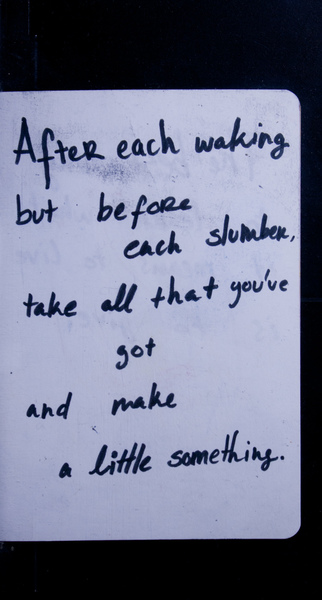 After each waking
but before
each slumber,
take all that you've
got
and make
a little something.